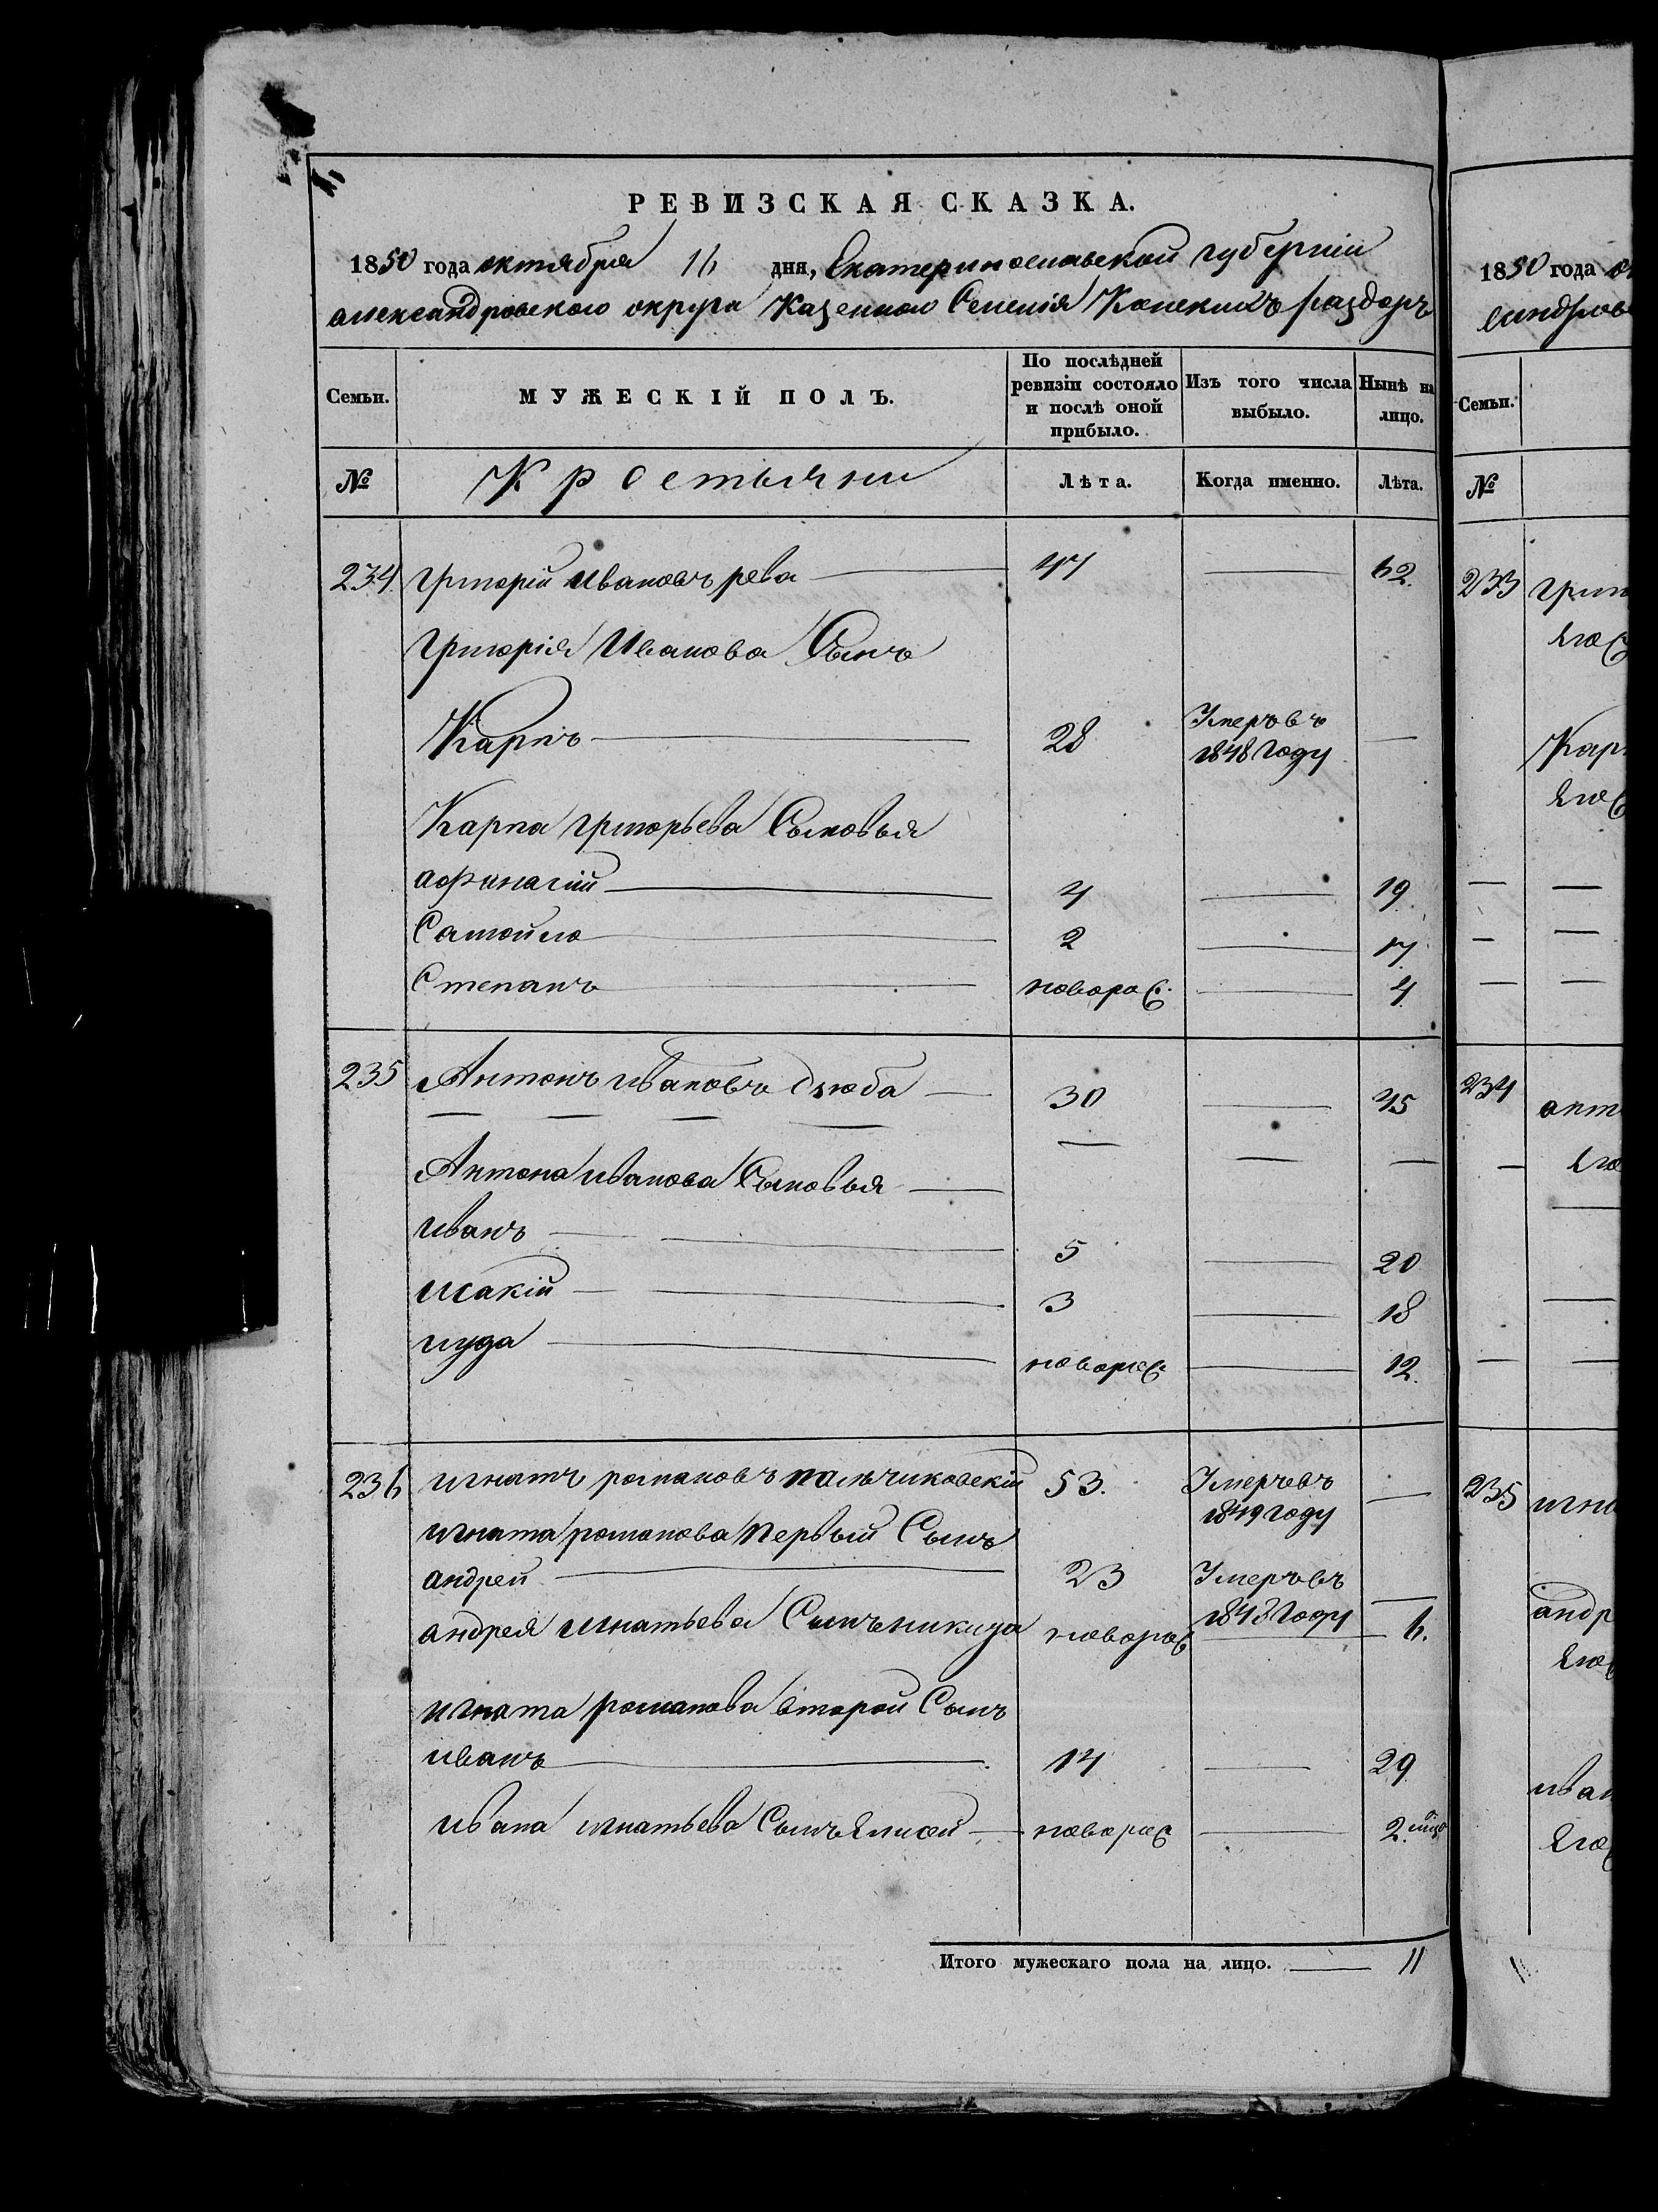 РЕВИЗСКАЯ СКАЗКА.
1850 года октября 16 дня, Екатеринославской губернии
александровского округа Казенного Селенія Конскихъ раздоръ
Семьи. МУЖЕСКІЙ ПОЛЪ. По послѣдней ревизіи состояло и послѣ оной прибыло. Изъ того числа выбыло. Нынѣ на лицо.
№ Крестьяни Лѣта. Когда именно. Лѣта.
234 григорій Ивановъ рева 47 — 62.
григорія Иванова Сынъ
Карпъ 28 Умеръ въ 1848 Году —
Карпа григорьева Сыновья
афанасій 4 — 19.
Самойло 2 — 17
Степанъ новорос. — 4
235 Антонъ ивановъ дзюба — 30 — 45
Антона иванова Сыновья —
иванъ 5 — 20
исакій 3 — 18
иуда новорос. — 12.
236 игнатъ романовъ пальчиковскій 53. Умеръ въ 1849 году —
игната романова первый Сынъ
андрей 23 Умеръ въ 1848 Году —
андрея игнатьева Сынъ никита новорос — 6.
игната романова второй Сынъ
иванъ 14 — 29
ивана игнатьева Сынъ новорос — 2.
Итого мужескаго пола на лицо. — 11
1850 года
Семьи.
№
233
234
235